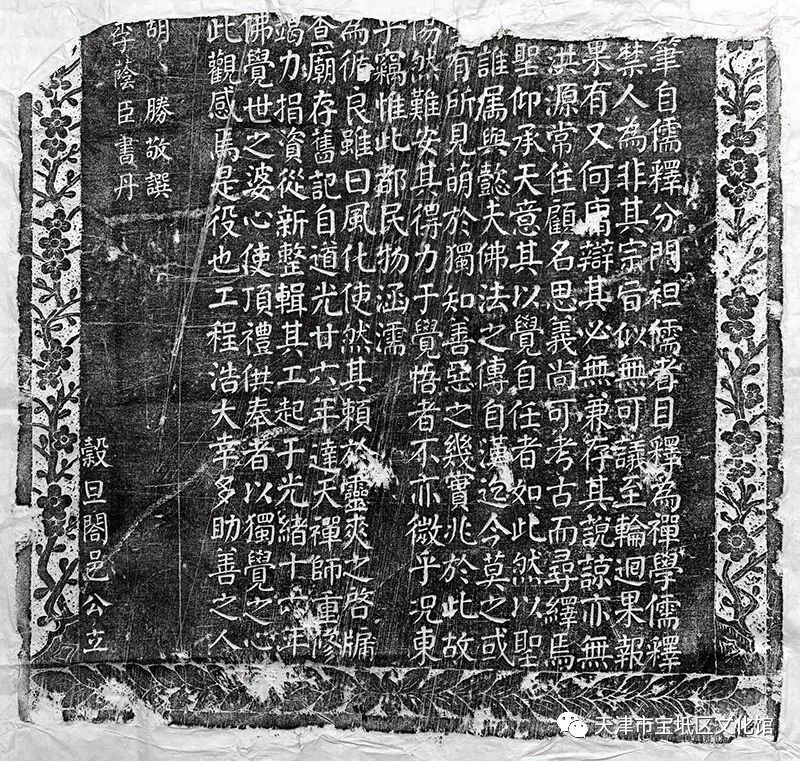 筆自儒釋分門袒儒者曰釋為禪學儒釋
禁人為非其宗旨似無可議至輪迴果報
果有又何庸辯其必無兼存其說諒亦無
洪源常住顧名思義尚可考古而尋繹焉
聖仰承天意其以覺自任者如此然以聖
誰属與懿夫佛法之傳自漢迄今莫之或
有所見萌於獨知善惡之幾實兆於此故
惕然難安其得力于覺悟者不亦微乎況東
乎竊惟此都民物涵濡
為循良雖曰風化使然其賴於靈爽之啓牖
查廟存舊記自道光廿六年達天禪師重修
竭力捐資從新整輯其工起于光緒十六年
佛覺世之婆心使頂禮供奉者以獨覺之心
此觀感焉是役也工程浩大幸多助善之人
胡 勝敬譔
李蔭臣書丹
穀旦閤邑公立
天津市宝坻区文化馆